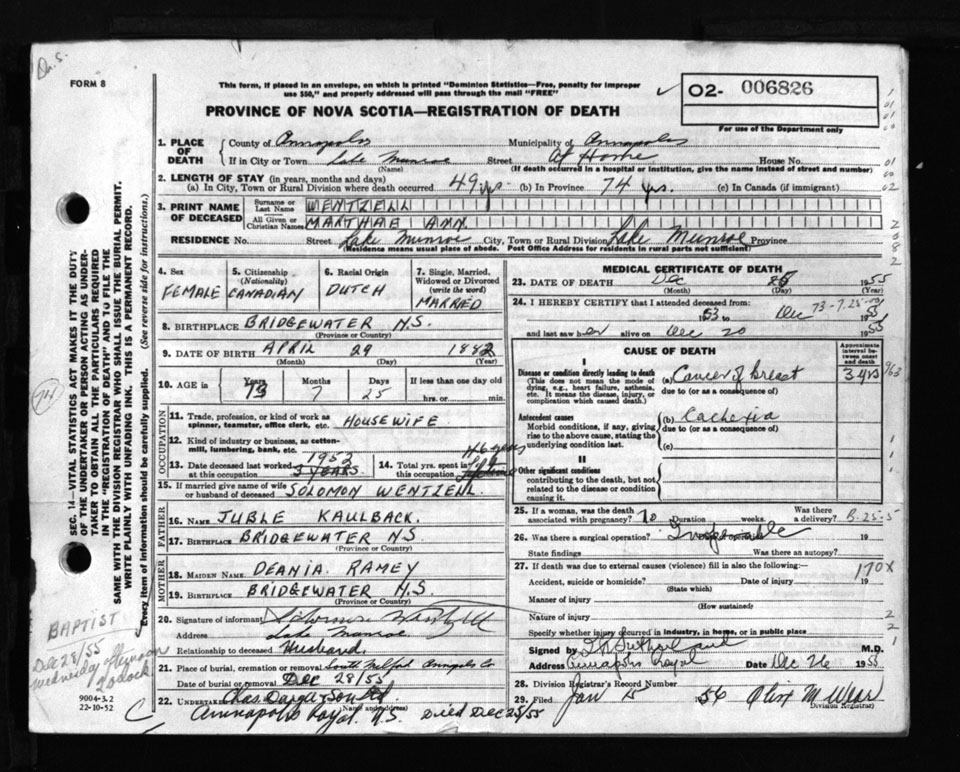 FORM 8
This form, if placed in an envelope, on which is printed "Dominion Statistics—Free, penalty for improper
use $50," and properly addressed will pass through the mail "FREE"
PROVINCE OF NOVA SCOTIA—REGISTRATION OF DEATH
O2- 006826
For use of the Department only
1. PLACE OF DEATH
County of Annapolis Municipality of Annapolis
If in City or Town Lake Munroe Street At Home House No.
(Name) (If death occurred in a hospital or institution, give the name instead of street and number)
2. LENGTH OF STAY (in years, months and days)
(a) In City, Town or Rural Division where death occurred 49 yrs. (b) In Province 74 yrs. (c) In Canada (if immigrant)
3. PRINT NAME OF DECEASED
Surname or Last Name WENTZELL
All Given or Christian Names MARTHAE ANN.
RESIDENCE No. Street Lake Munroe City, Town or Rural Division Lake Munroe Province
(Residence means usual place of abode. Post Office Address for residents in rural parts not sufficient)
4. Sex FEMALE
5. Citizenship (Nationality) CANADIAN
6. Racial Origin DUTCH
7. Single, Married, Widowed or Divorced (write the word) MARRIED
8. BIRTHPLACE BRIDGEWATER N.S.
(Province or Country)
9. DATE OF BIRTH APRIL 29 1882
(Month) (Day) (Year)
10. AGE in Years 73 Months 7 Days 25 If less than one day old hrs. or min.
OCCUPATION
11. Trade, profession, or kind of work as spinner, teamster, office clerk, etc. HOUSEWIFE
12. Kind of industry or business, as cotton-mill, lumbering, bank, etc.
13. Date deceased last worked at this occupation 1952 3 YEARS
14. Total yrs. spent in this occupation 46 years
15. If married give name of wife or husband of deceased SOLOMON WENTZELL
FATHER
16. NAME JUBLE KAULBACK.
17. BIRTHPLACE BRIDGEWATER N.S.
(Province or Country)
MOTHER
18. MAIDEN NAME DEANIA RAMEY
19. BIRTHPLACE BRIDGEWATER N.S.
(Province or Country)
20. Signature of informant
Address Lake Munroe
Relationship to deceased Husband.
21. Place of burial, cremation or removal South Milford Annapolis Co
Date of burial or removal Dec 28/55
22. UNDERTAKER Chas Dargie & Son Ltd
(Name and address)
Annapolis Royal N.S. Died Dec 25/55
MEDICAL CERTIFICATE OF DEATH
23. DATE OF DEATH Dec 25 1955
(Month) (Day)
24. I HEREBY CERTIFY that I attended deceased from:
53 to Dec 1955
73-7-25
and last saw her alive on Dec 20 1955
CAUSE OF DEATH
Approximate interval between onset and death
I
Disease or condition directly leading to death
(This does not mean the mode of dying, e.g., heart failure, asthenia, etc. It means the disease, injury, or complication which caused death.)
(a) Cancer of breast 3 yrs
due to (or as a consequence of)
Antecedent causes
Morbid conditions, if any, giving rise to the above cause, stating the underlying condition last.
(b) Cachexia
due to (or as a consequence of)
(c)
II
Other significant conditions
contributing to the death, but not related to the disease or condition causing it.
25. If a woman, was the death associated with pregnancy? No Duration weeks. Was there a delivery?
26. Was there a surgical operation? Inoperable 19
State findings Was there an autopsy?
27. If death was due to external causes (violence) fill in also the following:
170X
Accident, suicide or homicide? Date of injury 19
(State which)
Manner of injury
(How sustained)
Nature of injury
Specify whether injury occurred in industry, in home, or in public place
Signed by M.D.
Address Annapolis Royal Dec 26 1955
28. Division Registrar's Record Number
29. Filed Jan 5 1956
Division Registrar
SEC. 14—VITAL STATISTICS ACT MAKES IT THE DUTY
OF THE UNDERTAKER OR PERSON ACTING AS UNDER-
TAKER TO OBTAIN ALL THE PARTICULARS REQUIRED
IN THE "REGISTRATION OF DEATH" AND TO FILE THE
SAME WITH THE DIVISION REGISTRAR WHO SHALL ISSUE THE BURIAL PERMIT.
WRITE PLAINLY WITH UNFADING INK. THIS IS A PERMANENT RECORD.
Every item of information should be carefully supplied. (See reverse side for instructions.)
BAPTIST
Dec 28/55
Wednesday afternoon
2 oclock
9004-3.2
22-10-52